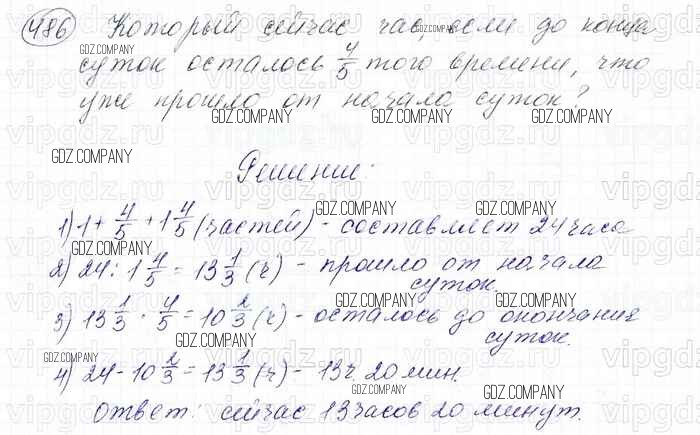 486 Который сейчас час, если до конца
GDZ.COMPANY GDZ.COMPANY
суток осталось 4/5 того времени, что
уже прошло от начала суток?
GDZ.COMPANY GDZ.COMPANY GDZ.COMPANY
GDZ.COMPANY
Решение:
GDZ.COMPANY GDZ.COMPANY
1) 1 + 4/5 + 1 4/5 (частей) - составляет 24 часа
GDZ.COMPANY
2) 24 : 1 4/5 = 13 1/3 (ч) - прошло от начала
суток.
GDZ.COMPANY GDZ.COMPANY GDZ.COMPANY
3) 13 1/3 · 4/5 = 10 2/3 (ч) - осталось до окончания
суток.
GDZ.COMPANY
GDZ.COMPANY
4) 24 - 10 2/3 = 13 1/3 (ч) - 13 ч. 20 мин.
GDZ.COMPANY GDZ.COMPANY
Ответ: сейчас 13 часов 20 минут.
GDZ.COMPANY
vipgdz.ru